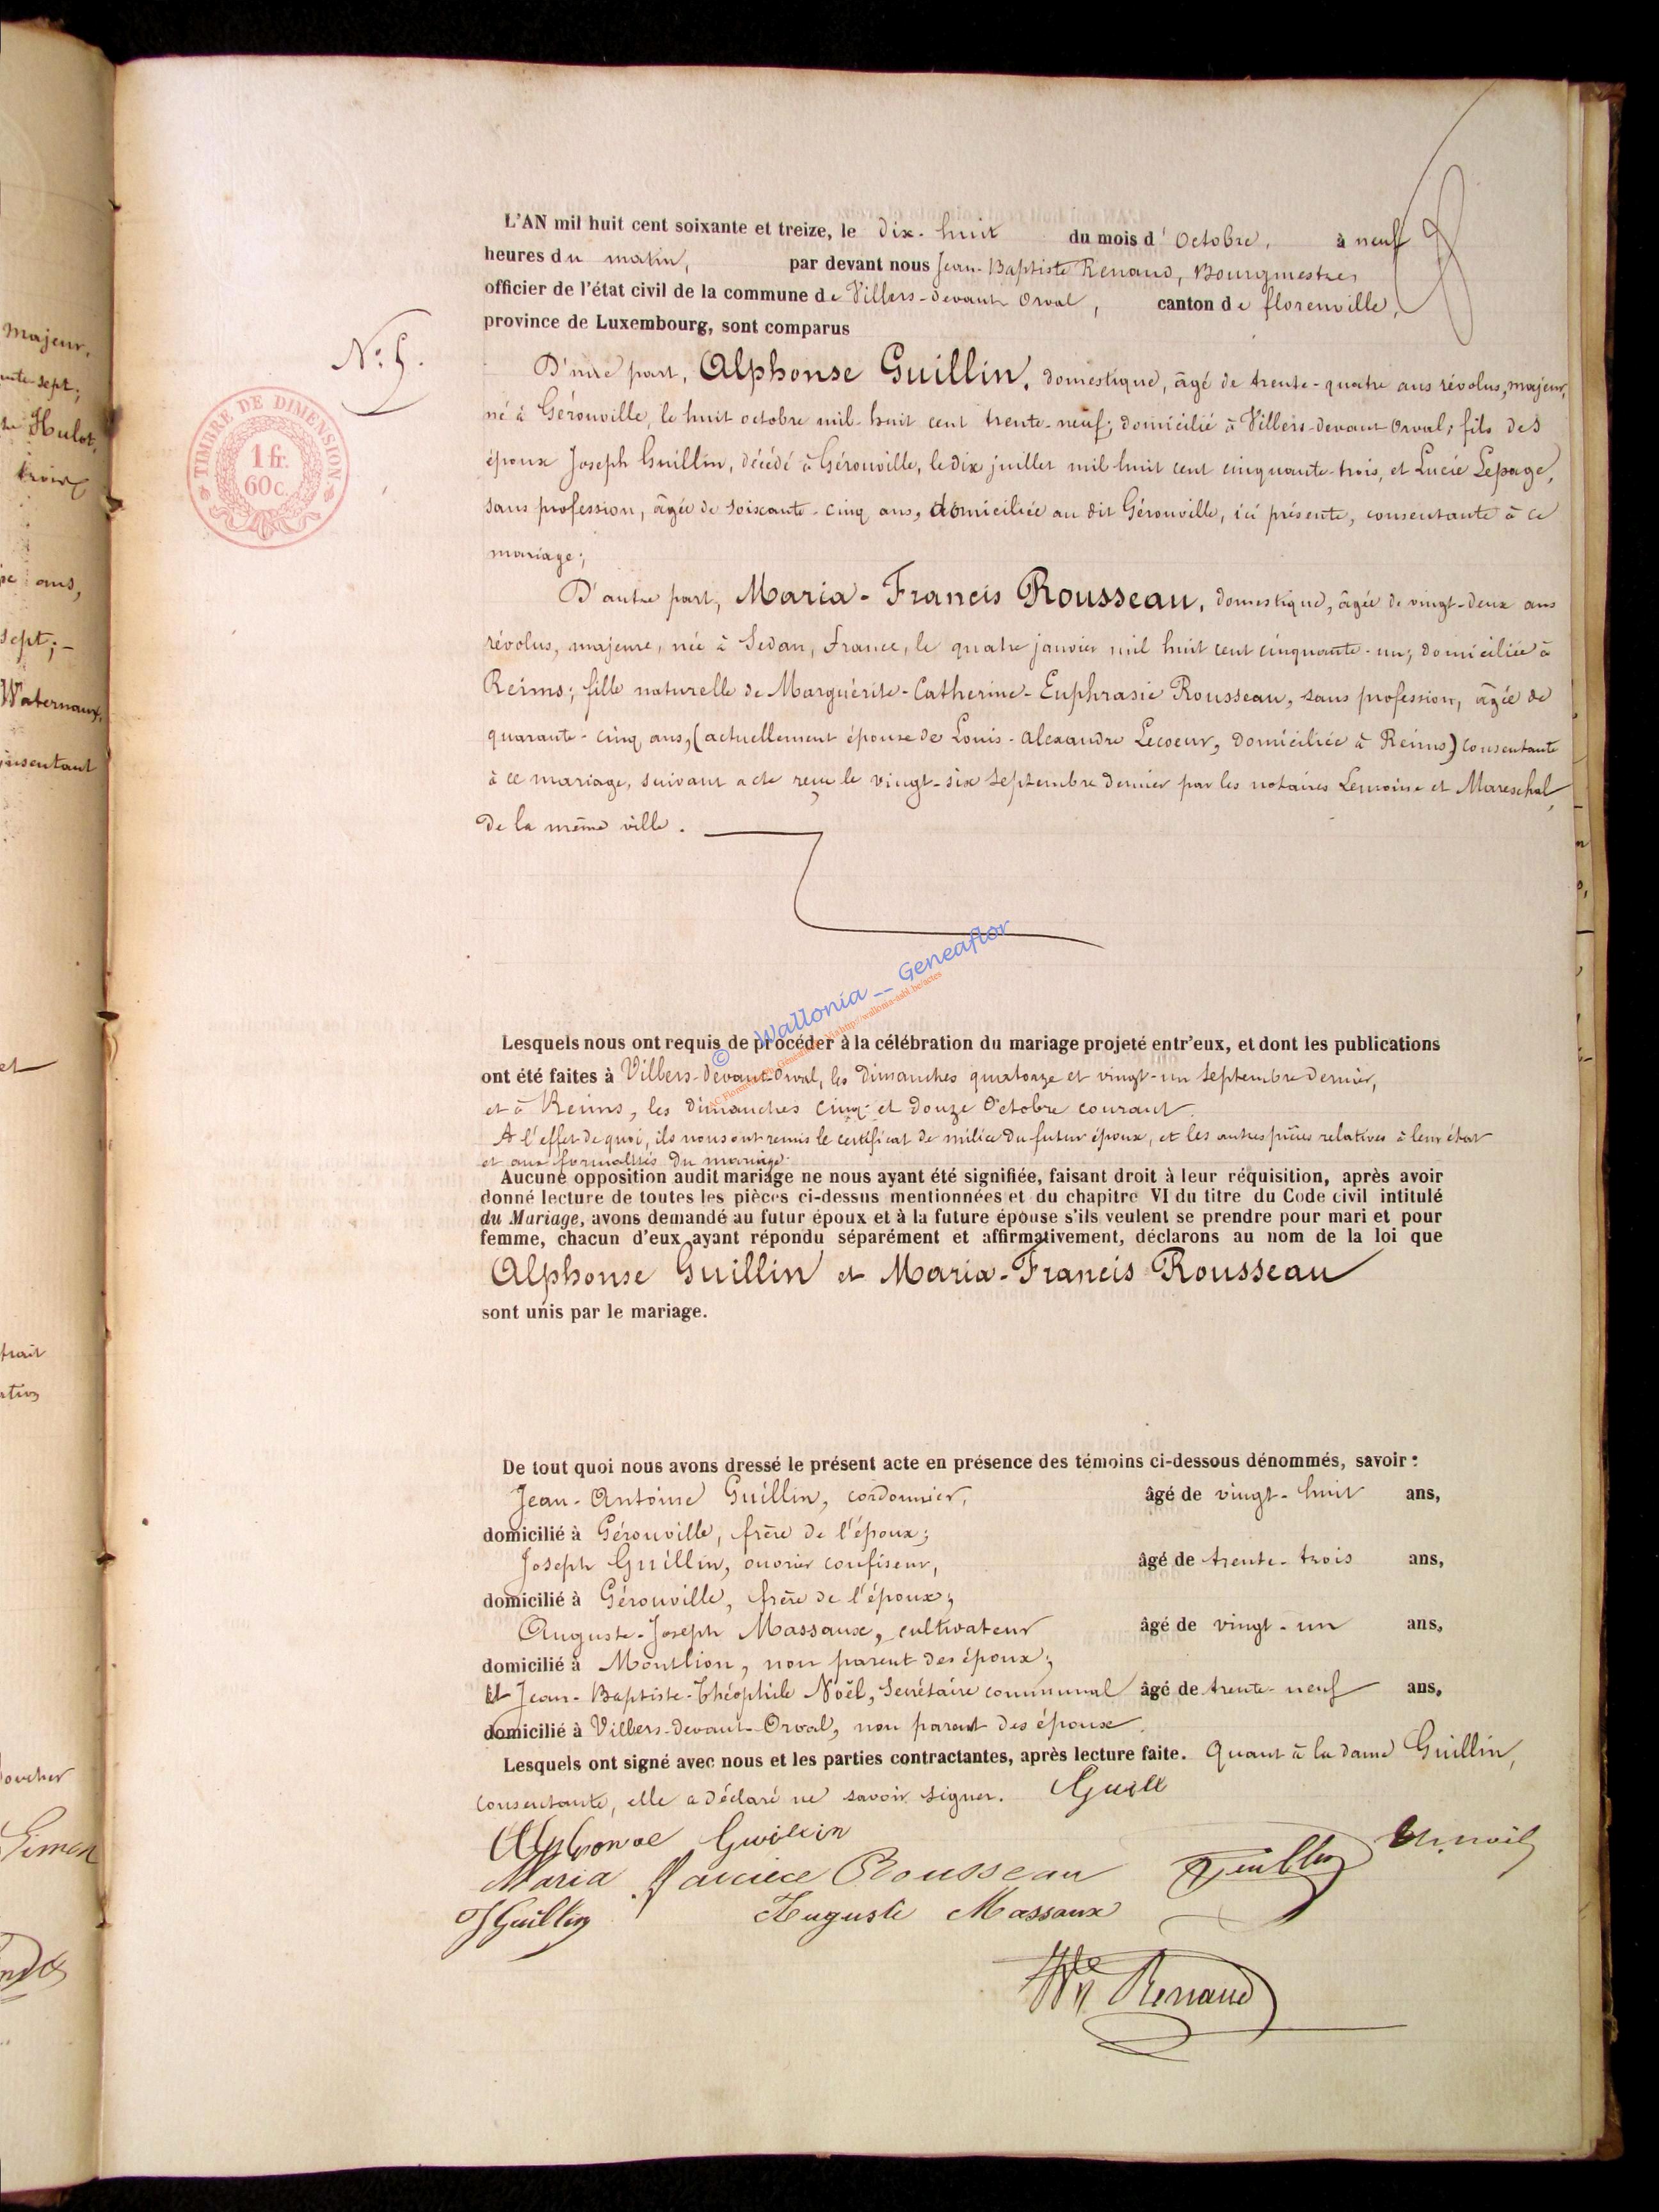 L'AN mil huit cent soixante et treize, le dix-huit du mois d'Octobre, à neuf
heures du matin, par devant nous Jean-Baptiste Renaud, Bourgmestre,
officier de l'état civil de la commune de Villers-devant Orval, canton de florenville,
province de Luxembourg, sont comparus
N° 5.
TIMBRE DE DIMENSION
1 fr.
60 c.
D'une part, Alphonse Guillin, domestique, âgé de trente-quatre ans révolus, majeur,
né à Gérouville, le huit octobre mil-huit cent trente-neuf; domicilié à Villers-devant-Orval; fils des
époux Joseph Guillin, décédé à Gérouville, le dix juillet mil huit cent cinquante-trois, et Lucie Lepage,
sans profession, âgée de soixante-cinq ans, domiciliée au dit Gérouville, ici présente, consentante à ce
mariage;
D'autre part, Maria-Francis Rousseau, domestique, âgée de vingt-deux ans
révolus, majeure, née à Sedan, france, le quatre janvier mil huit cent cinquante-un; domiciliée à
Reims; fille naturelle de Marguérite-Catherine-Euphrasie Rousseau, sans profession, âgée de
quarante-cinq ans, (actuellement épouse de Louis-alexandre Lecoeur, domiciliée à Reims) consentante
à ce mariage, suivant acte reçu le vingt-six septembre dernier par les notaires Lemoine et Mareschal,
de la même ville.
© Wallonia -- Geneaflor
Lesquels nous ont requis de procéder à la célébration du mariage projeté entr'eux, et dont les publications
ont été faites à Villers-devant-Orval, les dimanches quatorze et vingt-un septembre dernier,
et à Reims, les dimanches cinq et douze Octobre courant.
A l'effet de quoi, ils nous ont remis le certificat de milice du futur époux, et les autres pièces relatives à leur état
et aux formalités du mariage.
Aucune opposition audit mariage ne nous ayant été signifiée, faisant droit à leur réquisition, après avoir
donné lecture de toutes les pièces ci-dessus mentionnées et du chapitre VI du titre du Code civil intitulé
du Mariage, avons demandé au futur époux et à la future épouse s'ils veulent se prendre pour mari et pour
femme, chacun d'eux ayant répondu séparément et affirmativement, déclarons au nom de la loi que
Alphonse Guillin et Maria-Francis Rousseau
sont unis par le mariage.
De tout quoi nous avons dressé le présent acte en présence des témoins ci-dessous dénommés, savoir :
Jean-Antoine Guillin, cordonnier, âgé de vingt-huit ans,
domicilié à Gérouville, frère de l'époux;
Joseph Guillin, ouvrier confiseur, âgé de trente-trois ans,
domicilié à Gérouville, frère de l'époux;
Auguste-Joseph Massaux, cultivateur âgé de vingt-un ans,
domicilié à Montlion, non parent des époux;
Et Jean-Baptiste-Théophile Noël, Secrétaire communal âgé de trente-neuf ans,
domicilié à Villers-devant-Orval, non parent des époux.
Lesquels ont signé avec nous et les parties contractantes, après lecture faite. Quant à la dame Guillin,
consentante, elle a déclaré ne savoir signer. Guill
Alphonse Guillin
Maria Rousseau Guillin
J Guillin Auguste Massaux
Renaud
majeur,
sept;
Hulot,
ans,
sept;-
Waternaux,